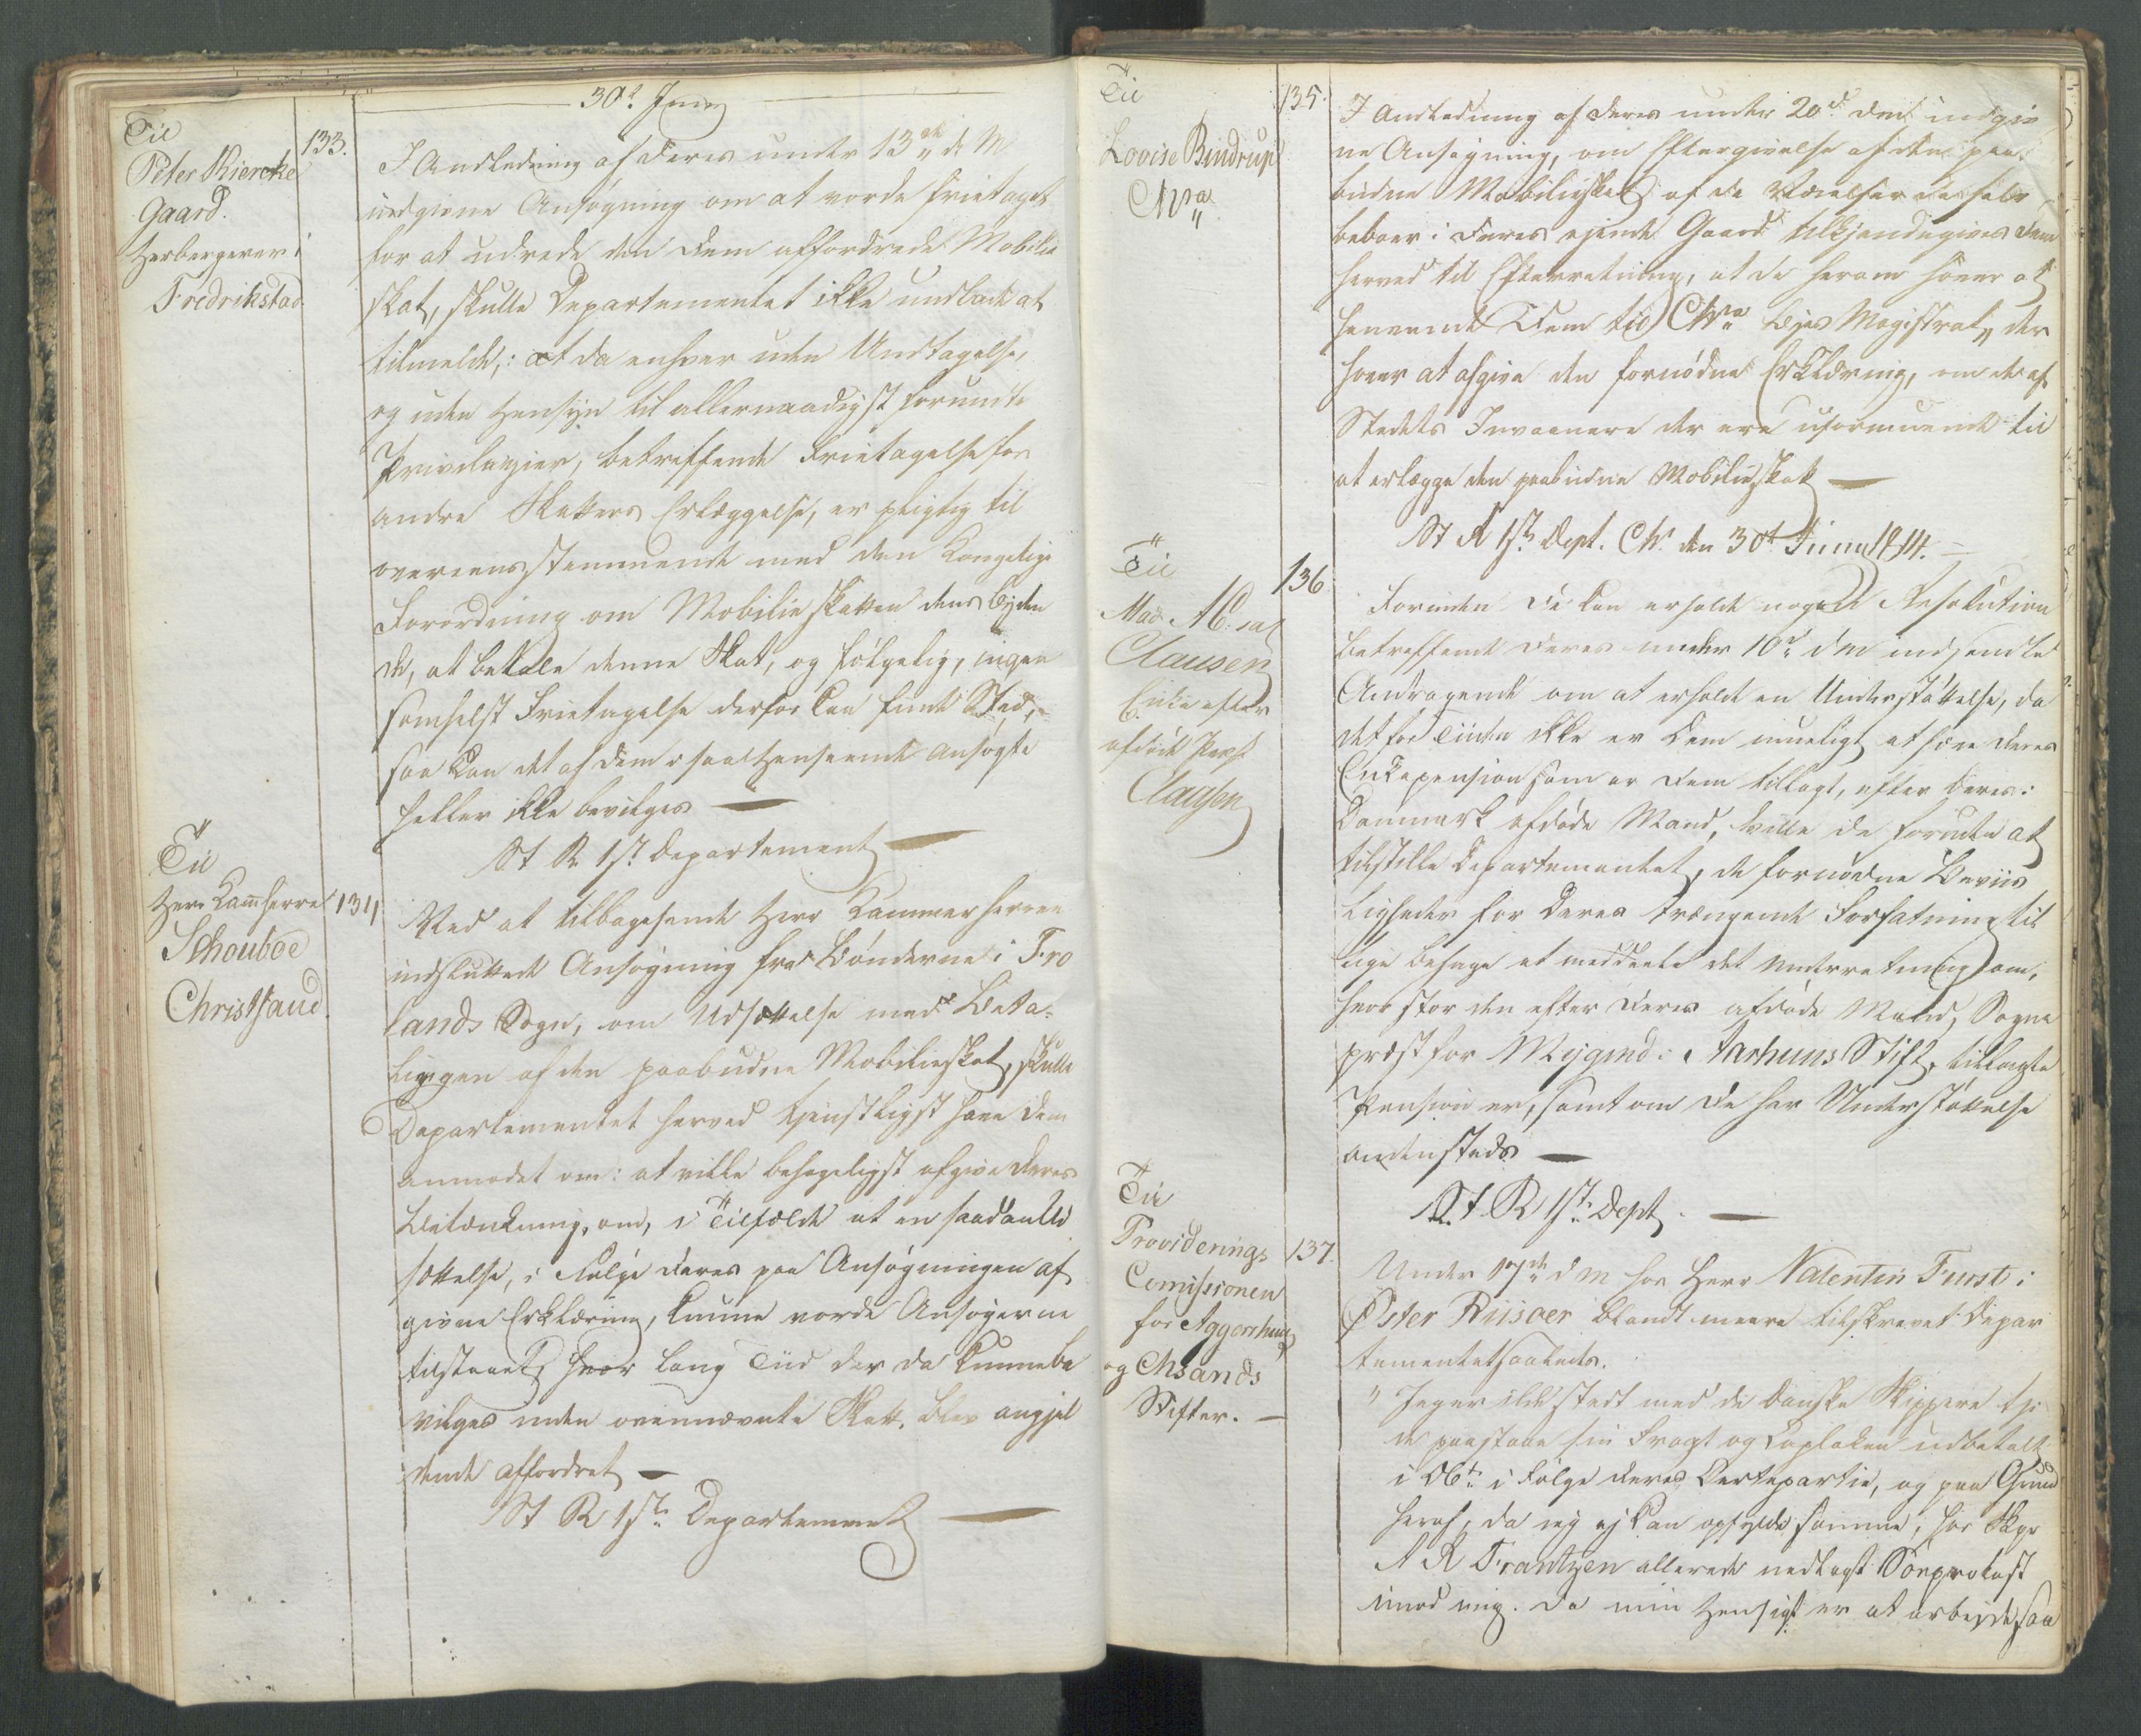 30t Juny
Til
Peter Kiereke
Gaard.
Herbergerer i
Fredrikstad
133.
I Andledning af Deres under 13de d. M
indgivne Ansøgning om at vorde frietaget
for at udrede den Dem affordrede Mobilie
skat, skulle Departementet ikke undlade at
tilmelde,: at da enhver uden Undtagelse,
og uden Hensyn til allernaadigst forundte
Privilegier, betreffende Frietagelse for
andre Skatters Erlæggelse, er pligtig til
overeensstemmende med den Kongelige
Forordning om Mobilieskatten dens Byden
de, at betale denne Skat, og følgelig, ingen
somhelst Frietagelse derfor kan finde Sted,
saa kan det af Dem i saa Henseende ansøgte
heller ikke bevilges —
St R 1st Departement —
Til
Herr Kamherre
Schouboe
Christsand.
134
Ved at tilbagesende Herr Kammerherren
indsluttede Ansøgning fra Bønderne i Fro
lands Sogn, om Udsættelse med Beta-
lingen af den paabudne Mobilieskat, skulle
Departementet herved tjenstligst have Dem
anmodet om: at ville behageligst afgive Deres
Betænkning, om, i Tilfælde at en saadan Ud
sættelse, i Følge Deres paa Ansøgningen af
givne Erklæring, kunne vorde Ansøgerne
tilstaaet, hvor lang Tiid der da kunne be
vilges inden ovennævnte Skatt. blev angjel
dende affordret —
St R 1ste Departement —
Til
Lovise Bindrup
Chra
135.
I Andledning af Deres under 20de dms indgiv
ne Ansøgning, om Eftergivelse af den paa-
budne Mobilieskat af de Værelser De selv
beboer i Deres ejende Gaard tilkjendegives Dem
herved til Efterretning, at De herom haver at
henvende Dem til Chra Byes Magistrat, der
haver at afgive den fornødne Erklæring, om de af
Stedets Indvaanere der ere uformuende til
at erlægge den paabudne Mobilieskat —
St R 1ste Dept. Chr. den 30t Juny 1814. —
Til
Mad. sal
Clausen
Enke efter
afdøde Præst
Claasen
136
Forinden De kan erholde nogen Resolution
betreffende Deres under 10de dM indsendte
Andragende om at erholde en Understøttelse, da
det for Tiiden ikke er Dem mueligt at hæve Deres
Enkepension som er Dem tillagt, efter Deres i
Danmark afdøde Mand, ville De foruden at
tilstille Departementet, de fornødne Beviis
ligheder for Deres trængende Forfatning til
lige behage at meddeele det Underretning om,
hvor stor den efter Deres afdøde Mand, Sogne
præst for Mygind i Aarhuus Stift, tillagte
Pension er, samt om De har Understøttelse
andensteds —
St R 1ste Dept. —
Til
Providerings
Comissionen
for Aggershuus
og Chsands
Stifter. —
137.
Under 17de dM har Herr Valentin Furst i
Øster Riisøer blandt meere tilskrevet Depar
tementet saaledes.
" Jeg er ilde stedt med de danske Skippere thi
de paastaae sin Fragt og Caplaken udbetalt
i Følge deres Certepartie, og paa Grund
heraf, da jeg ej kan opfylde samme, har Skpr
A R Frantzen allerede nedlagt Søeprotest
imod mig. Da min Hensigt er at arbejde saa